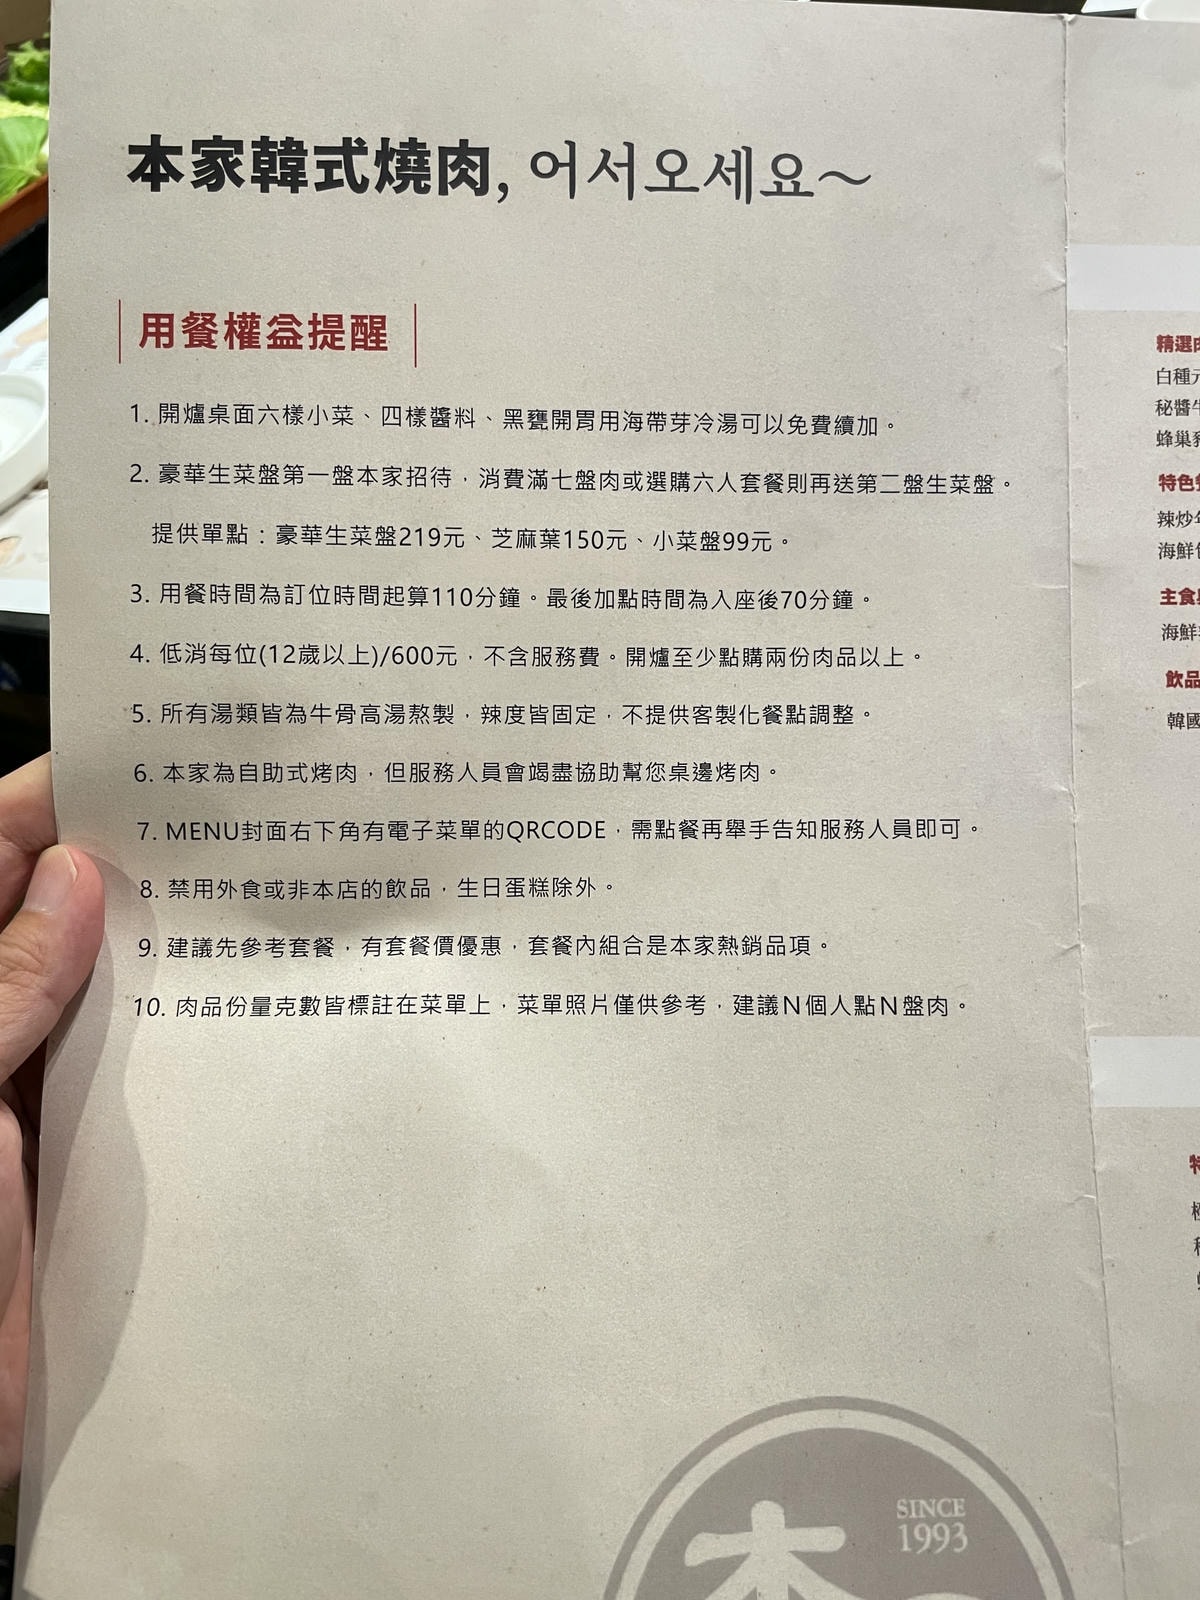 本家韓式燒肉, 어서오세요～
用餐權益提醒
1. 開爐桌面六樣小菜、四樣醬料、黑甕開胃用海帶芽冷湯可以免費續加。
2. 豪華生菜盤第一盤本家招待，消費滿七盤肉或選購六人套餐則再送第二盤生菜盤。
提供單點：豪華生菜盤219元、芝麻葉150元、小菜盤99元。
3. 用餐時間為訂位時間起算110分鐘。最後加點時間為入座後70分鐘。
4. 低消每位(12歲以上)/600元，不含服務費。開爐至少點購兩份肉品以上。
5. 所有湯類皆為牛骨高湯熬製，辣度皆固定，不提供客製化餐點調整。
6. 本家為自助式烤肉，但服務人員會竭盡協助幫您桌邊烤肉。
7. MENU封面右下角有電子菜單的QRCODE，需點餐再舉手告知服務人員即可。
8. 禁用外食或非本店的飲品，生日蛋糕除外。
9. 建議先參考套餐，有套餐價優惠，套餐內組合是本家熱銷品項。
10. 肉品份量克數皆標註在菜單上，菜單照片僅供參考，建議N個人點N盤肉。
本
SINCE
1993
精選
白種
秘醬
蜂巢
特色
辣炒
海鮮
主食
海鮮
飲品
韓國